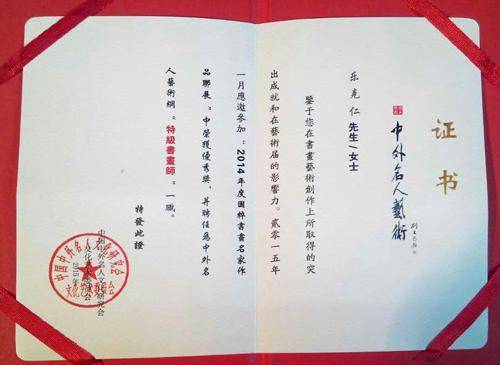 证书
中外名人藝術
乐克仁 先生/女士
鉴于您在書畫藝術創作上所取得的突
出成就和在藝術届的影響力。贰零一五年
一月應邀參加:2014年度國粹書畫名家作
品聯展。中榮獲優秀獎,并聘任爲中外名
人藝術網:特級書畫師。一職。
特發此證
中國中外名人文化研究會
2015